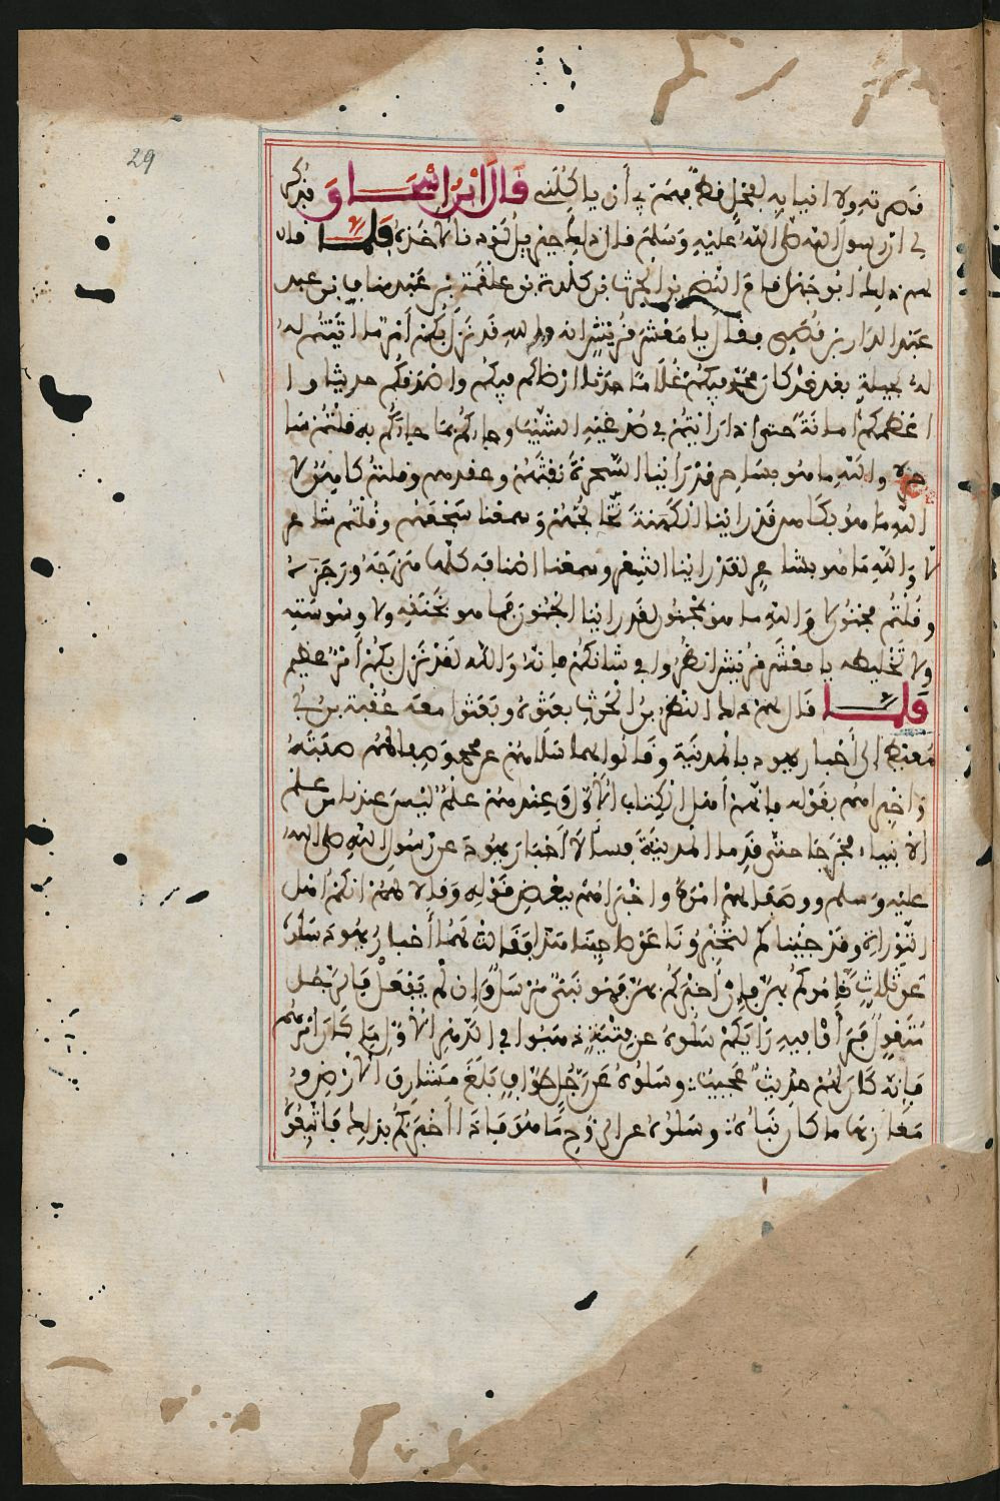 29
قصرته ولا انيابه لفحل قط فهمّ بي أن ياكلني قال ابن اسحاق فذكر
لي ان رسول الله صلى الله عليه وسلم قال ذلك جبريل لو دنا لاخذه فلما قال
لهم ذلك ابو جهل قام النضر بن الحرث بن كلدة بن علقمة بن عبد مناف بن عبد
عبد الدار بن قصي فقال يا معشر قريش انه والله قد نزل بكم أمر ما اتيتم له
له بحيلة بعد قد كان محمد فيكم غلاما حدثا ارضاكم فيكم واصدقكم حديثا وا
اعظمكم امانة حتى اذا رايتم في صدغيه الشيب وجاءكم بما جاءكم به قلتم سا
حر لا والله ما هو بساحر قد راينا السحرة نفثهم وعقدهم وقلتم كاهن لا
والله ما هو بكاهن قد راينا الكهنة تخالجهم وسمعنا سجعهم وقلتم شاعر
لا والله ما هو بشاعر لقد راينا الشعر وسمعنا اصنافه كلها هزجه ورجزه
وقلتم مجنون لا والله ما هو بمجنون لقد راينا الجنون فما هو بخنقه ولا وسوسته
ولا تخليطه يا معشر قريش انظروا في شانكم فانه والله لقد نزل بكم أمر عظيم
فلما قال لهم ذلك النضر بن الحرث بعثوه وبعثوا معه عقبة بن أبي
معيط الى أحبار يهود بالمدينة وقالوا لهما سلاهم عن محمد وصفا لهم صفته
واخبراهم بقوله فانهم أهل الكتاب الاول وعندهم علم ليس عندنا من علم
الانبياء فخرجا حتى قدما المدينة فسألا أحبار يهود عن رسول الله صلى الله
عليه وسلم ووصفا لهم امره واخبراهم ببعض قوله وقالا لهم انكم اهل
التوراة وقد جيناكم لتخبرونا عن صاحبنا هذا فقالت لهما أحبار يهود سلوه
عن ثلاث نامركم بهن فان أخبركم بهن فهو نبي مرسل وإن لم يفعل فالرجل
متقول فروا فيه رأيكم سلوه عن فتية ذهبوا في الدهر الاول ما كان امرهم
فانه كان لهم حديث عجيب وسلوه عن رجل طواف بلغ مشارق الارض و
مغاربها ما كان نبأه وسلوه عن الروح ما هو فاذا أخبركم بذلك فاتبعوه